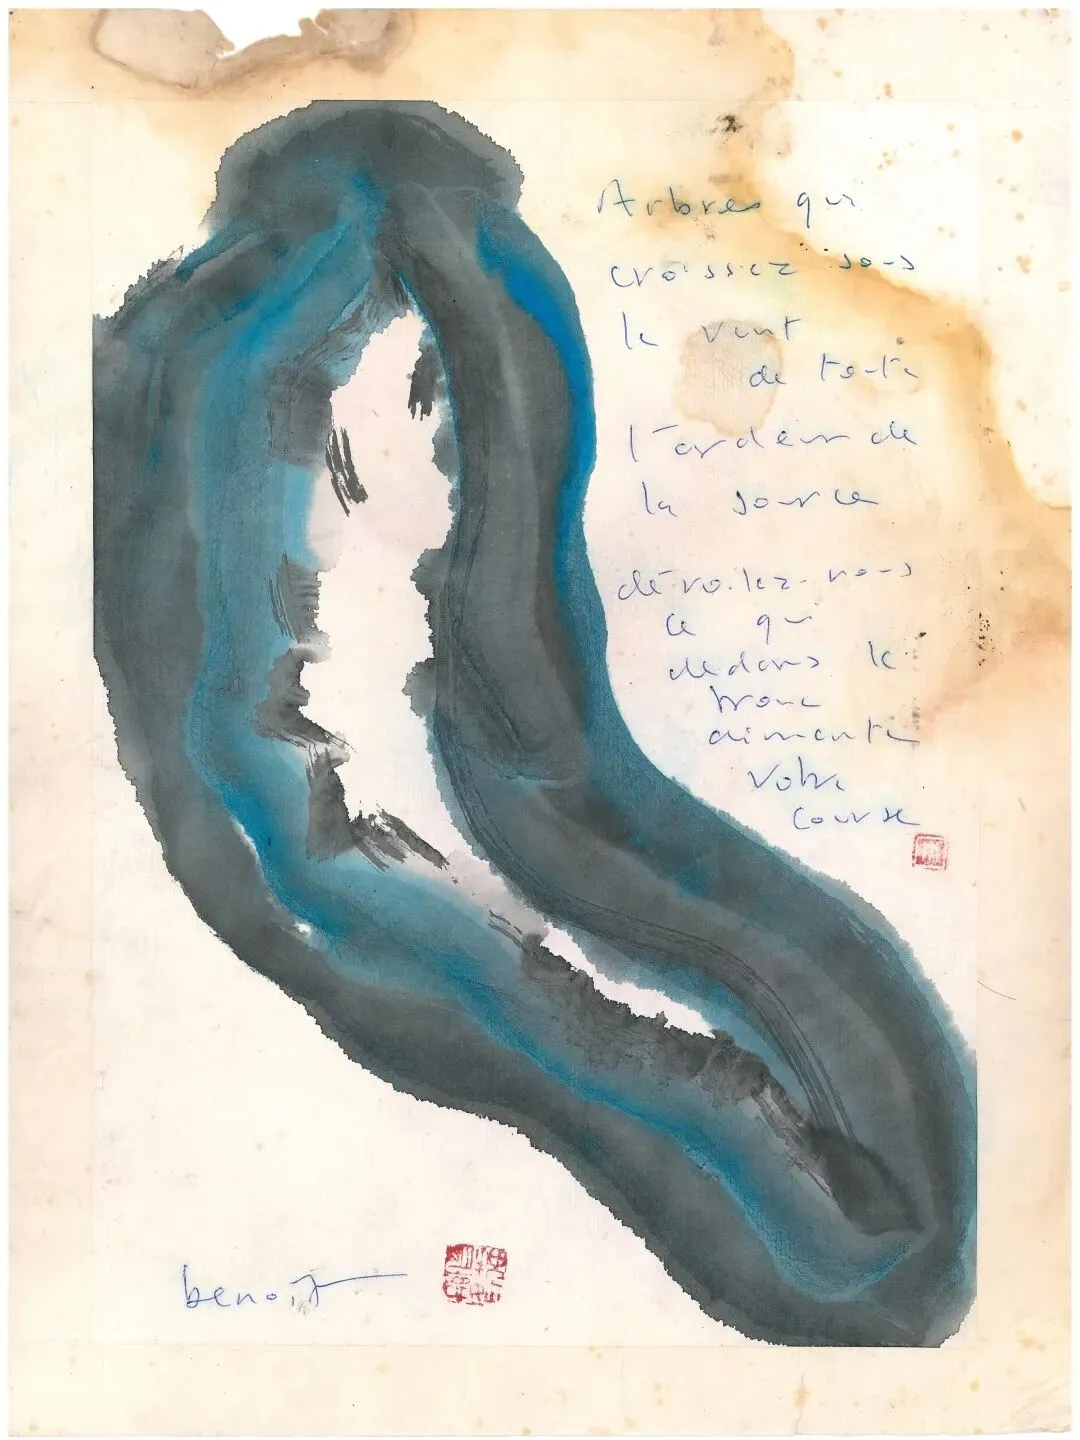 Arbres qui
croissez sous
le vent
de toute
l'ardeur de
la source
dévoilez-nous
ce qui
dedans le
tronc
aimante
votre
course
benoît